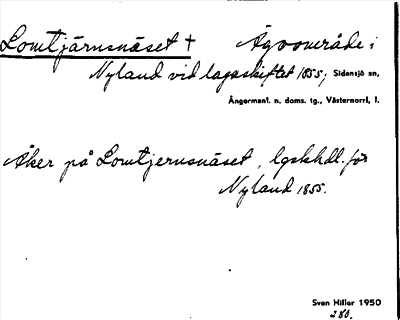 Lomtjärnsnäset † Ägoområde i
Nyland vid lagaskiftet 1855; Sidensjö sn,
Ångermanl. n. doms. tg., Västernorrl. l.
Åker på Lomtjernsnäset, lgskhdl. för
Nyland 1855.
Sven Hiller 1950
280.